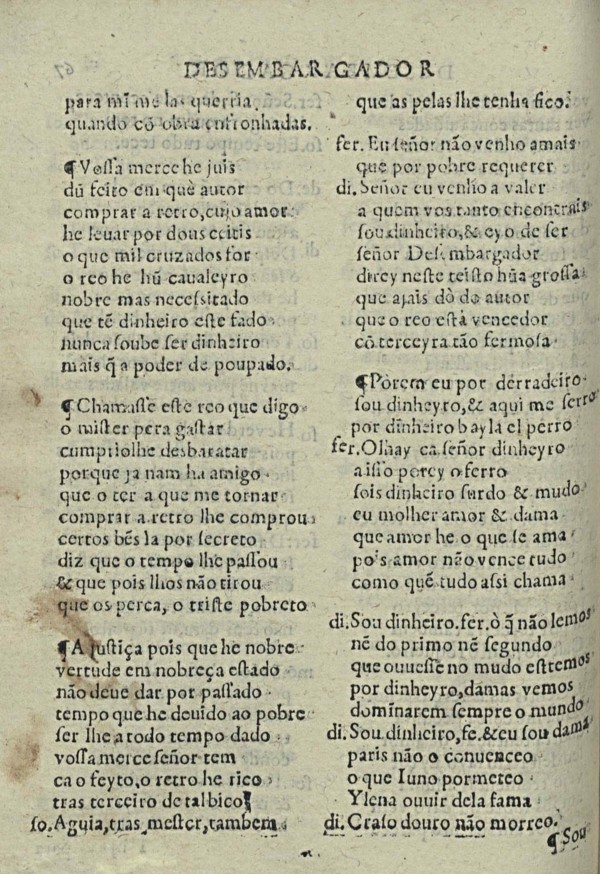 DESEMBARGADOR
para mĩ me las querria
quando cõ obra enfronhadas.
¶Vossa merce he juis
dũ feito em que autor
comprar a retro, cujo amor
he leuar por dous ceitis
o que mil cruzados for
o reo he hũ caualeyro
nobre mas necessitado
que tẽ dinheiro este fado
nunca soube ser dinheiro
mais q̃ a poder de poupado.
¶Chamasse este reo que digo
o mister pera gastar
cumpriolhe desbaratar
porque ja nam ha amigo
que o ter a que me tornar
comprar a retro lhe comprou
certos bẽs la por secreto
diz que o tempo lhe passou
& que pois lhos não tirou
que os perca, o triste pobreto
¶A justiça pois que he nobre
vertude em nobreça estado
não deue dar por passado
tempo que he deuido ao pobre
ser lhe a todo tempo dado
vossa merce señor tem
ca o feyto, o retro he rico
tras terceiro de tal bico
so. Aguia, tras, mester, tambem
que as pelas lhe tenha fico.
fer. Eu señor não venho a mais
que por pobre requerer
di. Señor eu venho a valer
a quem vos tanto encontrais
sou dinheiro, & ey o de ser
señor Desembargador
direy neste teisto hũa grossa
que ajais dó do autor
que o reo está vencedor
cõ terceyra tão fermosa
¶Porem eu por derradeiro
sou dinheyro, & aqui me ferro
por dinheiro bayla el perro
fer. Olhay ca señor dinheyro
a isso porey o ferro
sois dinheiro surdo & mudo
eu molher amor & dama
que amor he o que se ama
pois amor não vence tudo
como quẽ tudo assi chama
di. Sou dinheiro. fer. ò q̃ não lemos
nẽ do primo nẽ segundo
que ouuesse no mũdo estremos
por dinheyro, damas vemos
dominarem sempre o mundo
di. Sou dinheiro, fe. & eu sou dama
paris não o conuenceo
o que Iuno pormeteo
Ylena ouuir dela fama
di. Craso douro não morreo.
¶Sou